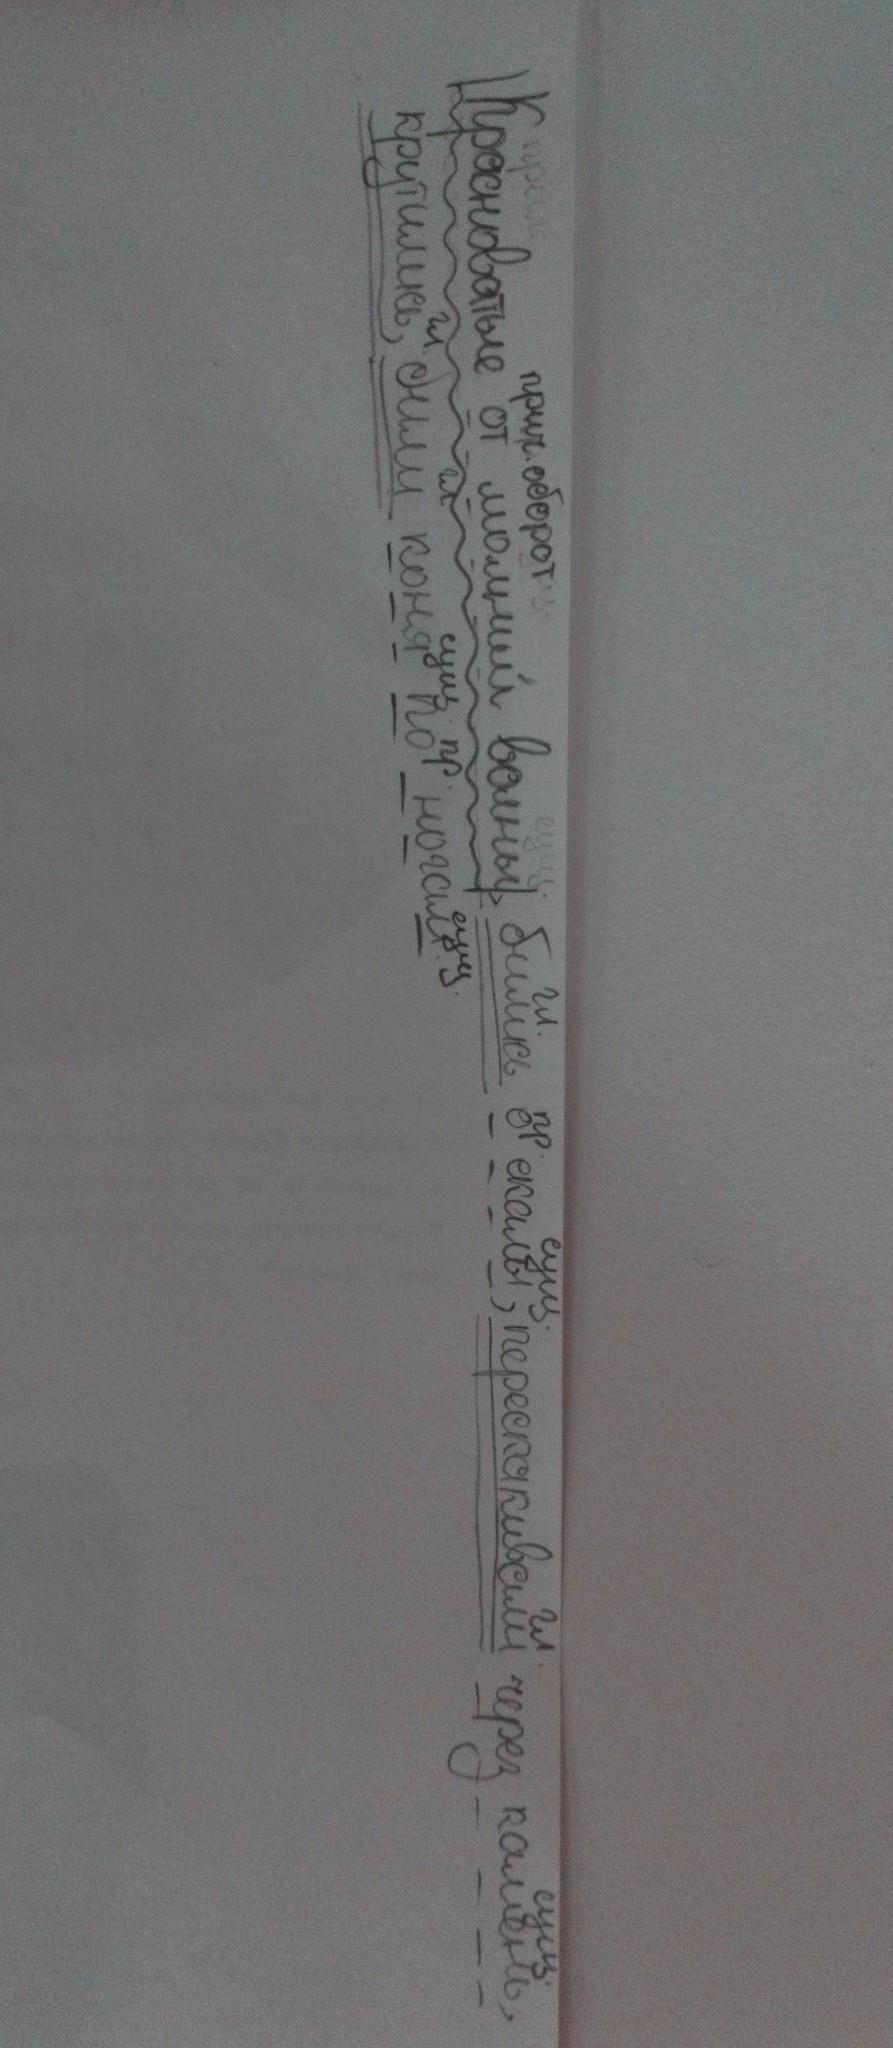 прич. оборот сущ. гл. пр. сущ. гл. сущ.
Красноватые от молний волны, бились о скалы, перескакивали через камень,
гл. гл. сущ. пр. сущ.
крутились, били коня по ногам.